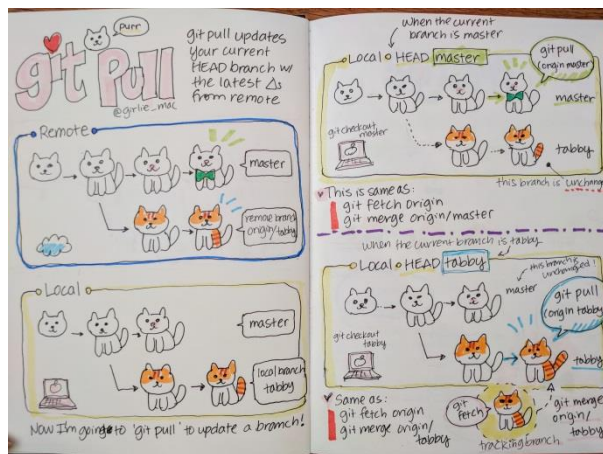 purr
git pull
@girlie_mac
git pull updates
your current
HEAD branch w/
the latest Δs
from remote
Remote
master
remote branch
origin/tabby
Local
master
local branch
tabby
Now I'm going to 'git pull' to update a branch!
when the current
branch is master
Local HEAD master
git pull
(origin master)
master
git checkout
master
tabby
this branch is unchanged
This is same as:
git fetch origin
git merge origin/master
when the current branch is tabby
Local HEAD tabby
this branch is
unchanged!
master
git pull
(origin tabby)
git checkout
tabby
tabby
Same as:
git fetch origin
git merge origin/
tabby
git
fetch
git merge
origin/
tabby
tracking branch